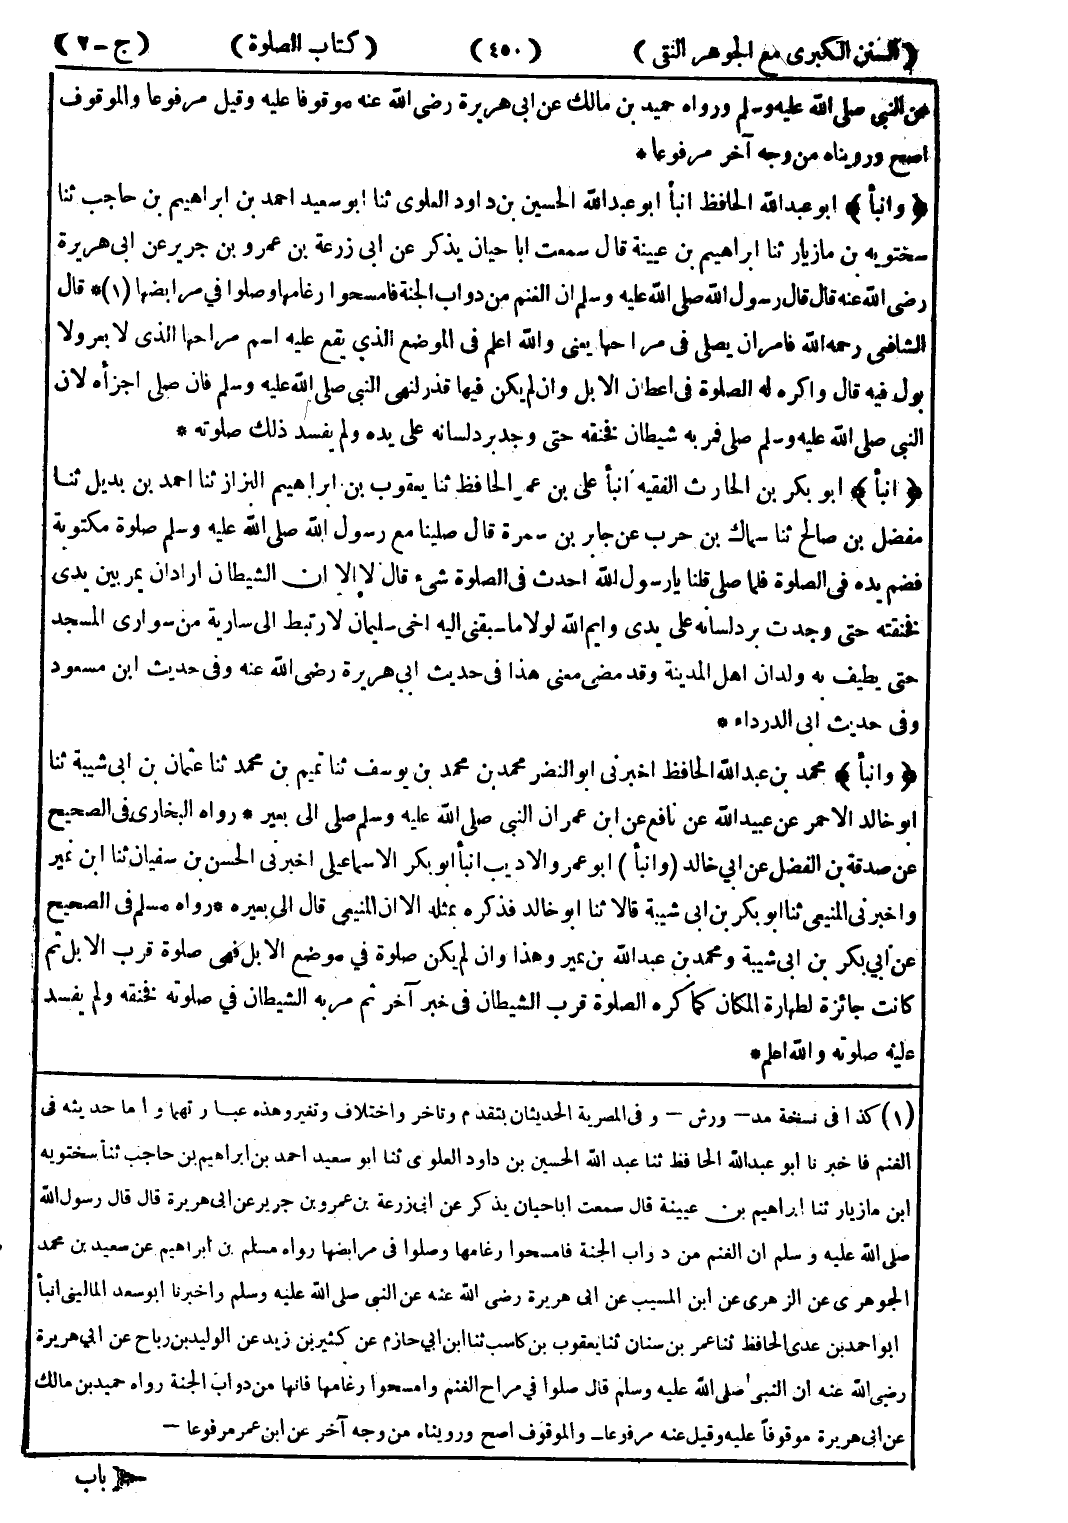 (السنن الكبرى مع الجوهر النقى) (٤٥٠) (كتاب الصلوة) (ج-٢)
عن النبي صلى الله عليه وسلم ورواه حميد بن مالك عن ابى هريرة رضى الله عنه موقوفا عليه وقيل مرفوعا والموقوف
اصح ورويناه من وجه آخر مرفوعا *
﴿ وانبأ ﴾ ابو عبد الله الحافظ انبأ ابو عبد الله الحسين بن داود العلوى ثنا ابو سعيد احمد بن ابراهيم بن حاجب ثنا
سختويه بن مازيار ثنا ابراهيم بن عيينة قال سمعت ابا حيان يذكر عن ابى زرعة بن عمرو بن جرير عن ابى هريرة
رضى الله عنه قال قال رسول الله صلى الله عليه وسلم ان الغنم من دواب الجنة فامسحوا رغامها وصلوا في مرابضها (١)* قال
الشافعى رحمه الله فامر ان يصلى فى مراحها يعنى والله اعلم فى الموضع الذي يقع عليه اسم مراحها الذى لا بعر ولا
بول فيه قال واكره له الصلوة فى اعطان الابل وان لم يكن فيها قذر لنهى النبي صلى الله عليه وسلم فان صلى اجزأه لان
النبي صلى الله عليه وسلم صلى فمر به شيطان فخنقه حتى وجد برد لسانه على يده ولم يفسد ذلك صلوته *
﴿ انبأ ﴾ ابو بكر بن الحارث الفقيه انبأ على بن عمر الحافظ ثنا يعقوب بن ابراهيم البزاز ثنا احمد بن بديل ثنا
مفضل بن صالح ثنا سماك بن حرب عن جابر بن سمرة قال صلينا مع رسول الله صلى الله عليه وسلم صلوة مكتوبة
فضم يده فى الصلوة فلما صلى قلنا يا رسول الله احدث فى الصلوة شىء قال لا الا ان الشيطان اراد ان يمر بين يدى
فخنقته حتى وجدت برد لسانه على يدى وايم الله لولا ما سبقنى اليه اخى سليمان لارتبط الى سارية من سوارى المسجد
حتى يطيف به ولدان اهل المدينة وقد مضى معنى هذا فى حديث ابي هريرة رضى الله عنه وفى حديث ابن مسعود
وفى حديث ابى الدرداء *
﴿ وانبأ ﴾ محمد بن عبد الله الحافظ اخبرنى ابو النضر محمد بن محمد بن يوسف ثنا تميم بن محمد ثنا عثمان بن ابى شيبة ثنا
ابو خالد الاحمر عن عبيد الله عن نافع عن ابن عمر ان النبى صلى الله عليه وسلم صلى الى بعير * رواه البخارى فى الصحيح
عن صدقة بن الفضل عن ابي خالد (وانبأ) ابو عمرو الاديب انبأ ابو بكر الاسماعيلى اخبرنى الحسن بن سفيان ثنا ابن نمير
واخبرنى المنيعى ثنا ابو بكر بن ابى شيبة قالا ثنا ابو خالد فذكره بمثله الا ان المنيعى قال الى بعيره * رواه مسلم فى الصحيح
عن أبي بكر بن ابى شيبة ومحمد بن عبد الله بن نمير وهذا وان لم يكن صلوة في موضع الابل فهى صلوة قرب الابل ثم
كانت جائزة لطهارة المكان كما كره الصلوة قرب الشيطان فى خبر آخر ثم مر به الشيطان في صلوته فخنقه ولم يفسد
عليه صلوته والله اعلم *
(١) كذا فى نسخة مد — ورش — و فى المصرية الحديثان بتقدم وتاخر واختلاف وتغير وهذه عبارتهما و أما حديثه فى
الغنم فاخبرنا ابو عبد الله الحافظ ثنا عبد الله الحسين بن داود العلوى ثنا ابو سعيد احمد بن ابراهيم بن حاجب ثنا سختويه
ابن مازيار ثنا ابراهيم بن عيينة قال سمعت اباحيان يذكر عن ابى زرعة بن عمرو بن جرير عن ابى هريرة قال قال رسول الله
صلى الله عليه وسلم ان الغنم من دواب الجنة فامسحوا رغامها وصلوا فى مرابضها رواه مسلم بن ابراهيم عن سعيد بن محمد
الجوهرى عن الزهرى عن ابن المسيب عن ابى هريرة رضى الله عنه عن النبى صلى الله عليه وسلم واخبرنا ابو سعد المالينى انبأ
ابو احمد بن عدى الحافظ ثنا عمر بن سنان ثنا يعقوب بن كاسب ثنا ابن ابي حازم عن كثير بن زيد عن الوليد بن رباح عن ابي هريرة
رضى الله عنه ان النبى صلى الله عليه وسلم قال صلوا في مراح الغنم وامسحوا رغامها فانها من دواب الجنة رواه حميد بن مالك
عن ابى هريرة موقوفاً عليه وقيل عنه مرفوعا — والموقوف اصح ورويناه من وجه آخر عن ابن عمر مرفوعا —
باب